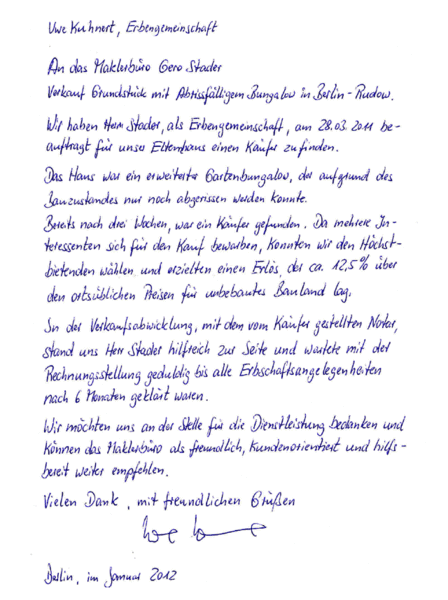 Uwe Kuhnert, Erbengemeinschaft
An das Maklerbüro Gero Stader
Verkauf Grundstück mit Abrissfälligem Bungalow in Berlin-Rudow.
Wir haben Herrn Stader, als Erbengemeinschaft, am 28.03.2011 be-
auftragt für unser Elternhaus einen Käufer zu finden.
Das Haus war ein erweiterter Gartenbungalow, der aufgrund des
Bauzustandes nur noch abgerissen werden konnte.
Bereits nach drei Wochen, war ein Käufer gefunden. Da mehrere In-
teressenten sich für den Kauf bewarben, konnten wir den Höchst-
bietenden wählen und erzielten einen Erlös, der ca. 12,5% über
den ortsüblichen Preisen für unbebautes Bauland lag.
In der Verkaufsabwicklung, mit dem vom Käufer gestellten Notar,
stand uns Herr Stader hilfreich zur Seite und wartete mit der
Rechnungsstellung geduldig bis alle Erbschaftsangelegenheiten
nach 6 Monaten geklärt waren.
Wir möchten uns an der Stelle für die Dienstleistung bedanken und
können das Maklerbüro als freundlich, kundenorientiert und hilfs-
bereit weiter empfehlen.
Vielen Dank, mit freundlichen Grüßen
Berlin, im Januar 2012